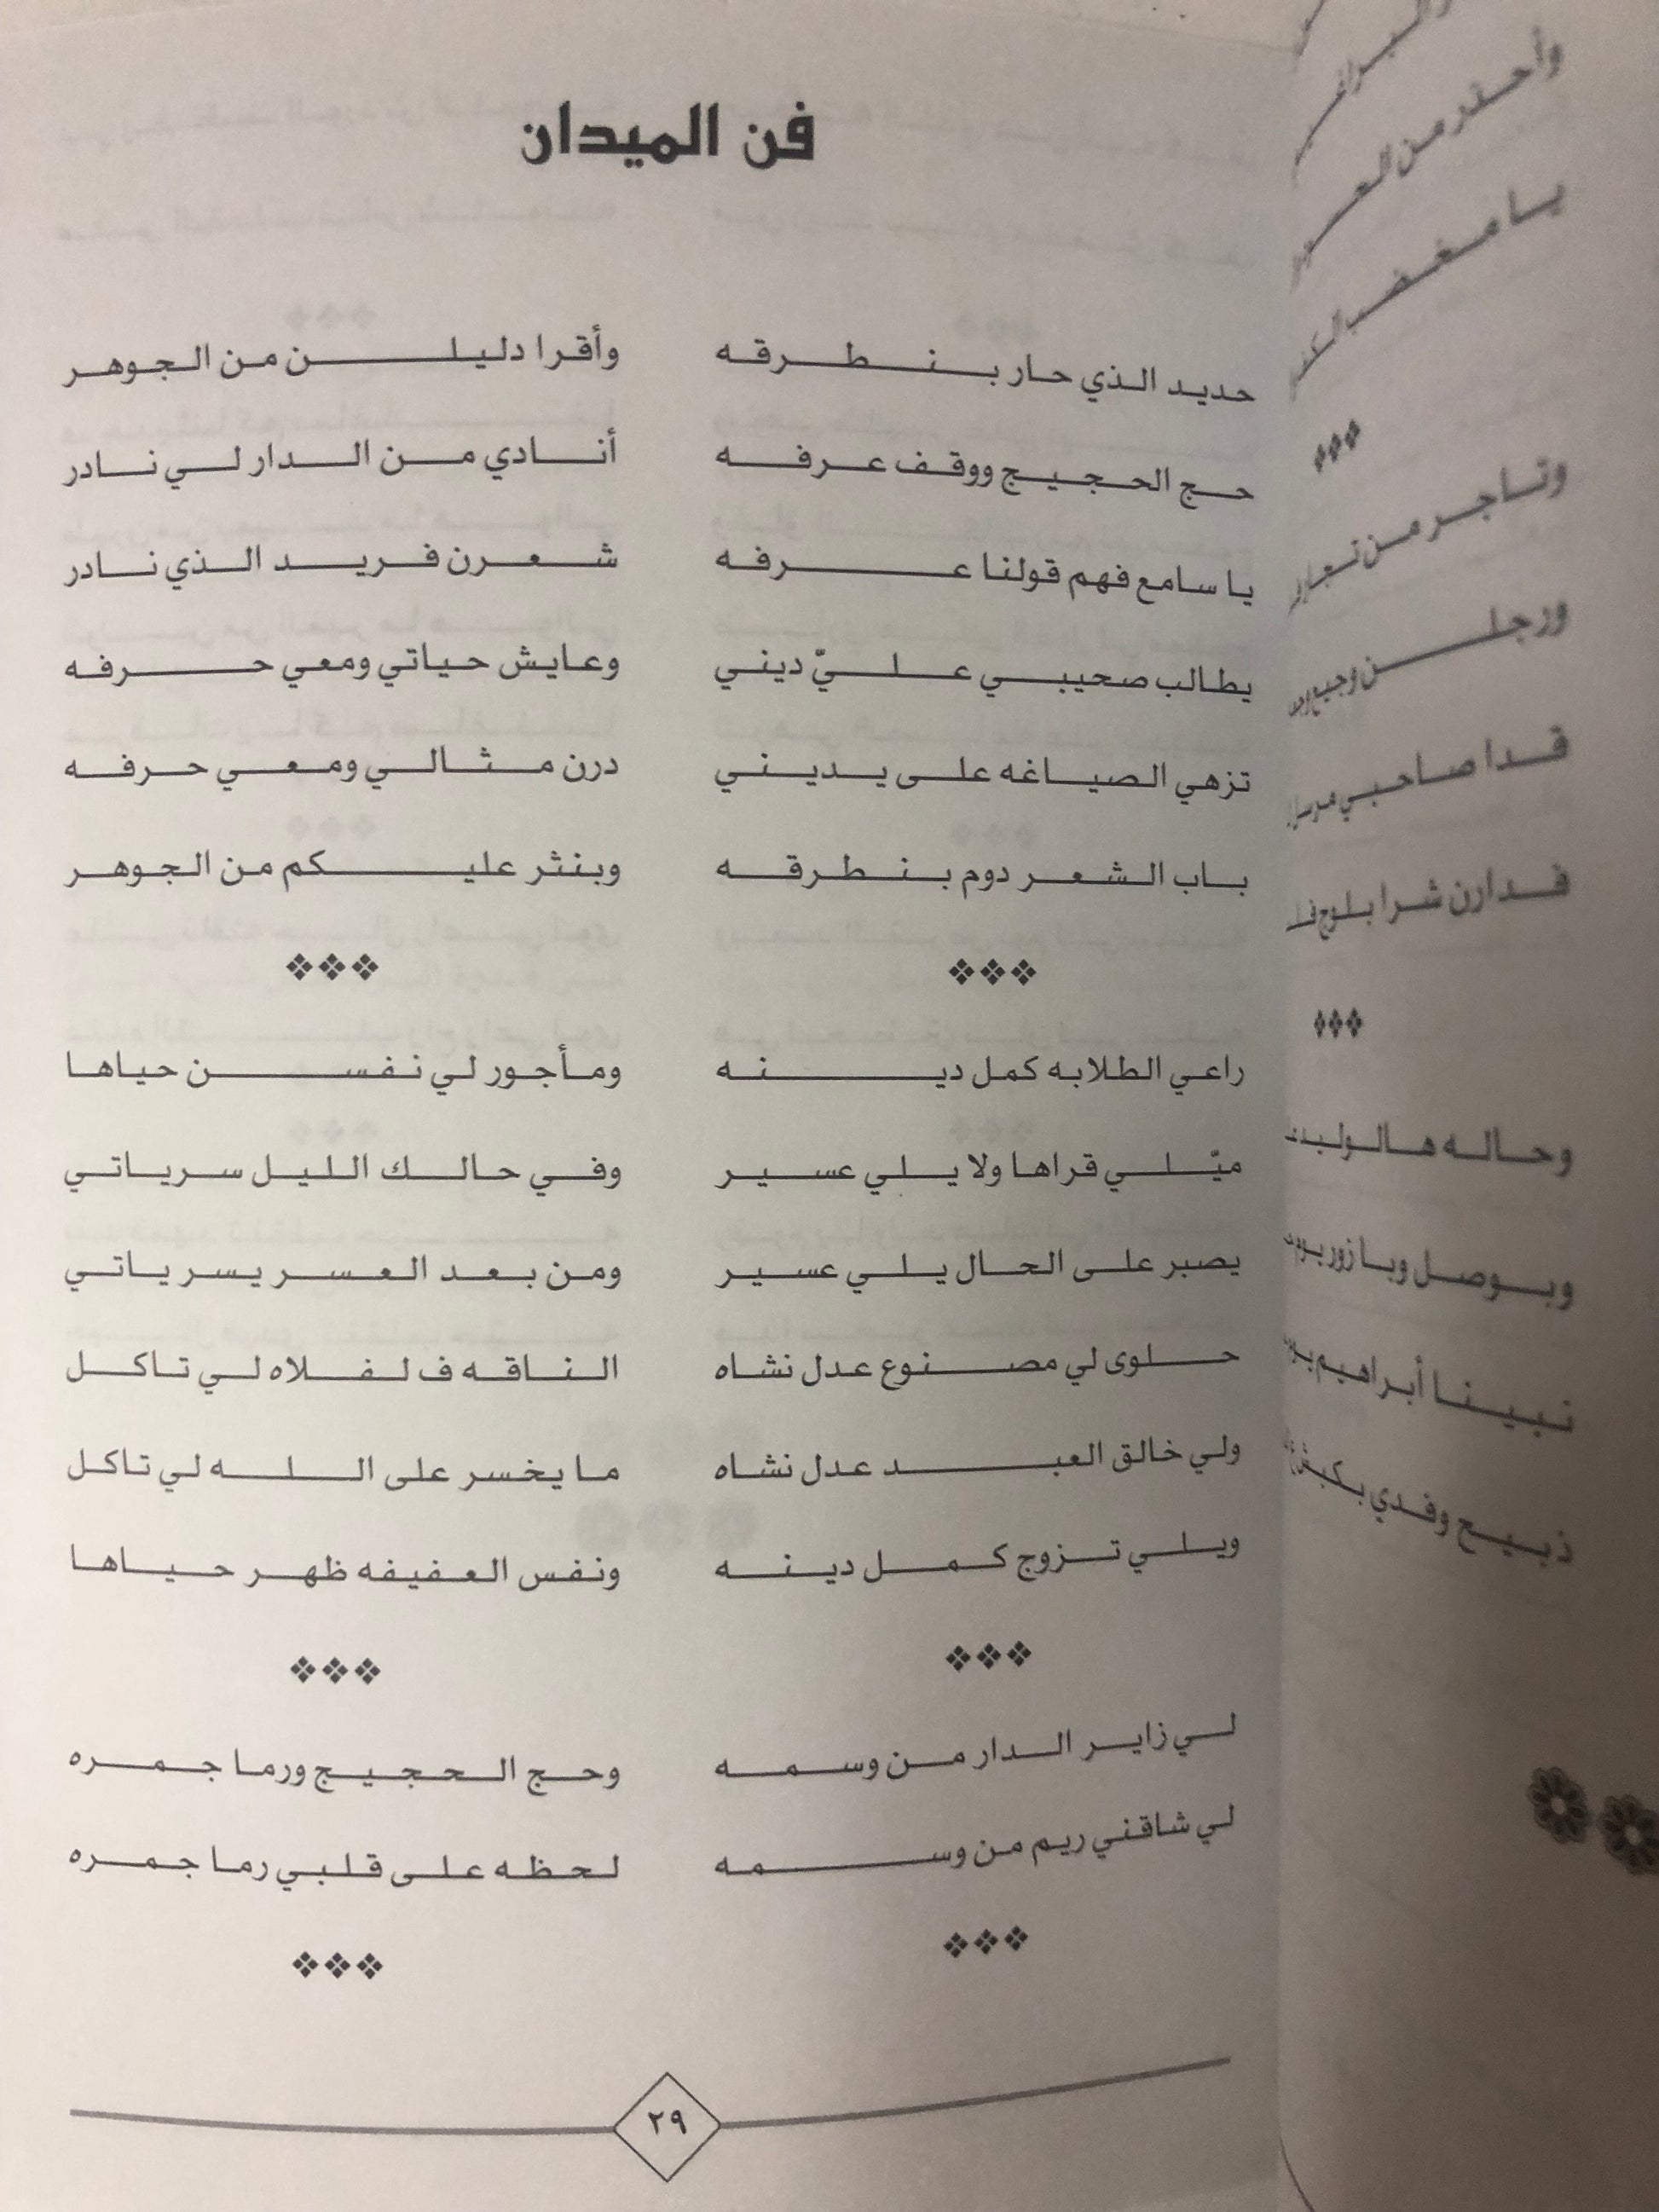 فن الميدان
حديد الذي حار بنطرقه وأقرا دليلن من الجوهر
حج الحجيج ووقف عرفه أنادي من الدار لي نادر
يا سامع فهم قولنا عرفه شعرن فريد الذي نادر
يطالب صحيبي عليّ ديني وعايش حياتي ومعي حرفه
تزهي الصياغه على يديني درن مثالي ومعي حرفه
باب الشعر دوم بنطرقه وبنثر عليكم من الجوهر
❖❖❖ ❖❖❖
راعي الطلابه كمل دينه ومأجور لي نفسن حياها
ميّلي قراها ولا يلي عسير وفي حالك الليل سرياتي
يصبر على الحال يلي عسير ومن بعد العسر يسر ياتي
حلوى لي مصنوع عدل نشاه الناقه ف لفلاه لي تاكل
ولي خالق العبد عدل نشاه ما يخسر على الله لي تاكل
ويلي تزوج كمل دينه ونفس العفيفه ظهر حياها
❖❖❖ ❖❖❖
لي زاير الدار من وسمه وحج الحجيج ورما جمره
لي شاقني ريم من وسمه لحظه على قلبي رما جمره
❖❖❖ ❖❖❖
٢٩
وأحذر من
يا مغضب
❖❖❖
وتاجر من تجار
ورجلن وجيع
قدا صاحبي
فدارن شرا بلوج
❖❖❖
وحاله هالوليد
وبوصل وبا زور
نبينا أبراهيم
ذبيح وفدي بكبش